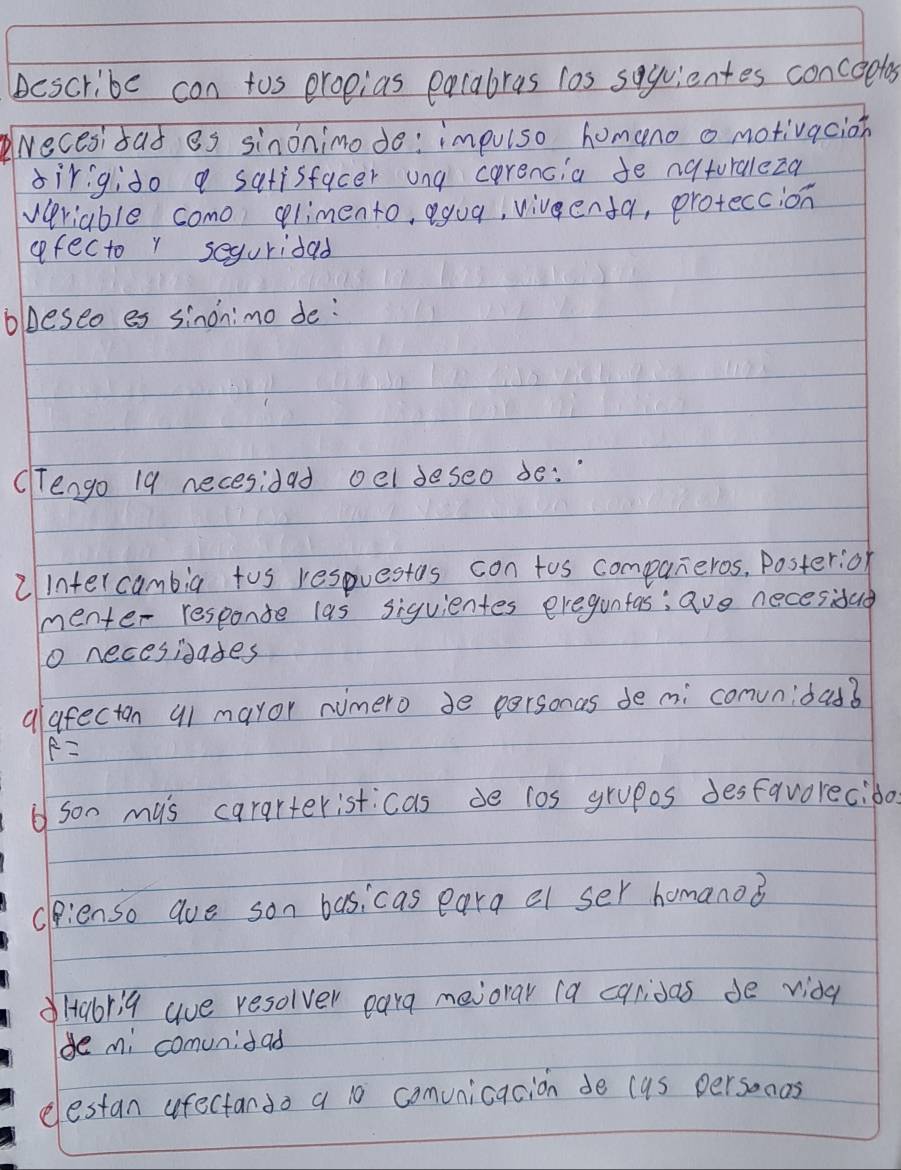 Describe con tus propias palabras los siguientes conceptos
Necesidad es sinónimo de: impulso humano o motivación
dirigido a satisfacer una carencia de naturaleza
variable como alimento, agua, vivaenda, protección
afecto y seguridad
b Deseo es sinónimo de:
c Tengo la necesidad o el deseo de:
2 Intercambia tus respuestas con tus compañeros. Posterior
mente- responde las siguientes preguntas: Que necesidad
o necesidades
a afectan al mayor número de personas de mi comunidad?
R=
b son más cararteristicas de los grupos desfavorecidos
c Pienso que son basicas para el ser humano?
d Habria que resolver para mejorar la caridas de vida
de mi comunidad
e estan afectando a lo comunicación de las personas